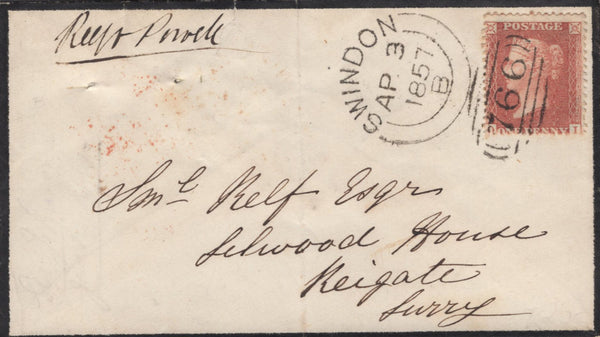 Powell
SWINDON
AP 3
1857
B
POSTAGE
ONE PENNY
I
766
Sml. Relf Esqr
Selwood House
Reigate
Surry